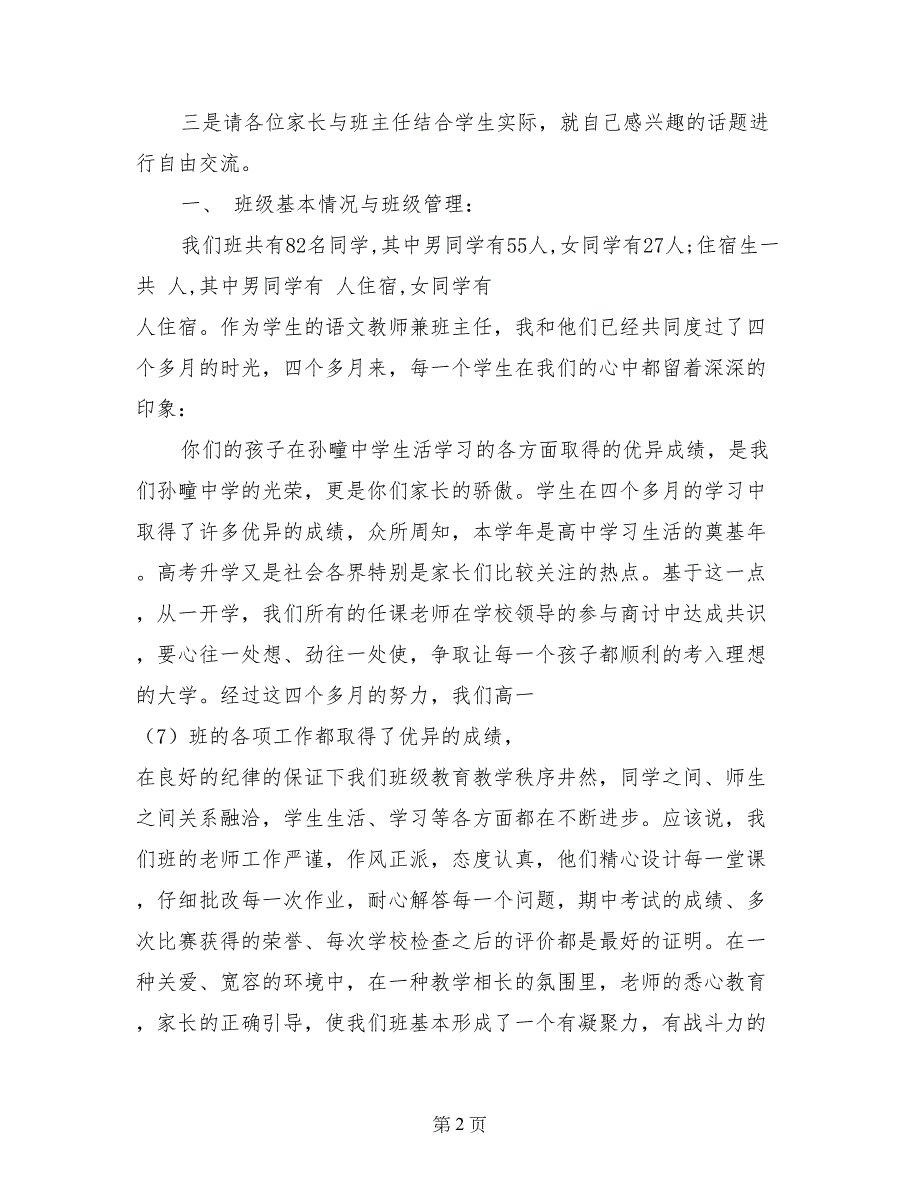 三是请各位家长与班主任结合学生实际，就自己感兴趣的话题进
行自由交流。
一、 班级基本情况与班级管理：
我们班共有82名同学,其中男同学有55人,女同学有27人;住宿生一
共 人,其中男同学有 人住宿,女同学有
人住宿。作为学生的语文教师兼班主任，我和他们已经共同度过了四
个多月的时光，四个多月来，每一个学生在我们的心中都留着深深的
印象：
你们的孩子在孙疃中学生活学习的各方面取得的优异成绩，是我
们孙疃中学的光荣，更是你们家长的骄傲。学生在四个多月的学习中
取得了许多优异的成绩，众所周知，本学年是高中学习生活的奠基年
。高考升学又是社会各界特别是家长们比较关注的热点。基于这一点
，从一开学，我们所有的任课老师在学校领导的参与商讨中达成共识
，要心往一处想、劲往一处使，争取让每一个孩子都顺利的考入理想
的大学。经过这四个多月的努力，我们高一
（7）班的各项工作都取得了优异的成绩，
在良好的纪律的保证下我们班级教育教学秩序井然，同学之间、师生
之间关系融洽，学生生活、学习等各方面都在不断进步。应该说，我
们班的老师工作严谨，作风正派，态度认真，他们精心设计每一堂课
，仔细批改每一次作业，耐心解答每一个问题，期中考试的成绩、多
次比赛获得的荣誉、每次学校检查之后的评价都是最好的证明。在一
种关爱、宽容的环境中，在一种教学相长的氛围里，老师的悉心教育
，家长的正确引导，使我们班基本形成了一个有凝聚力，有战斗力的
第 2 页